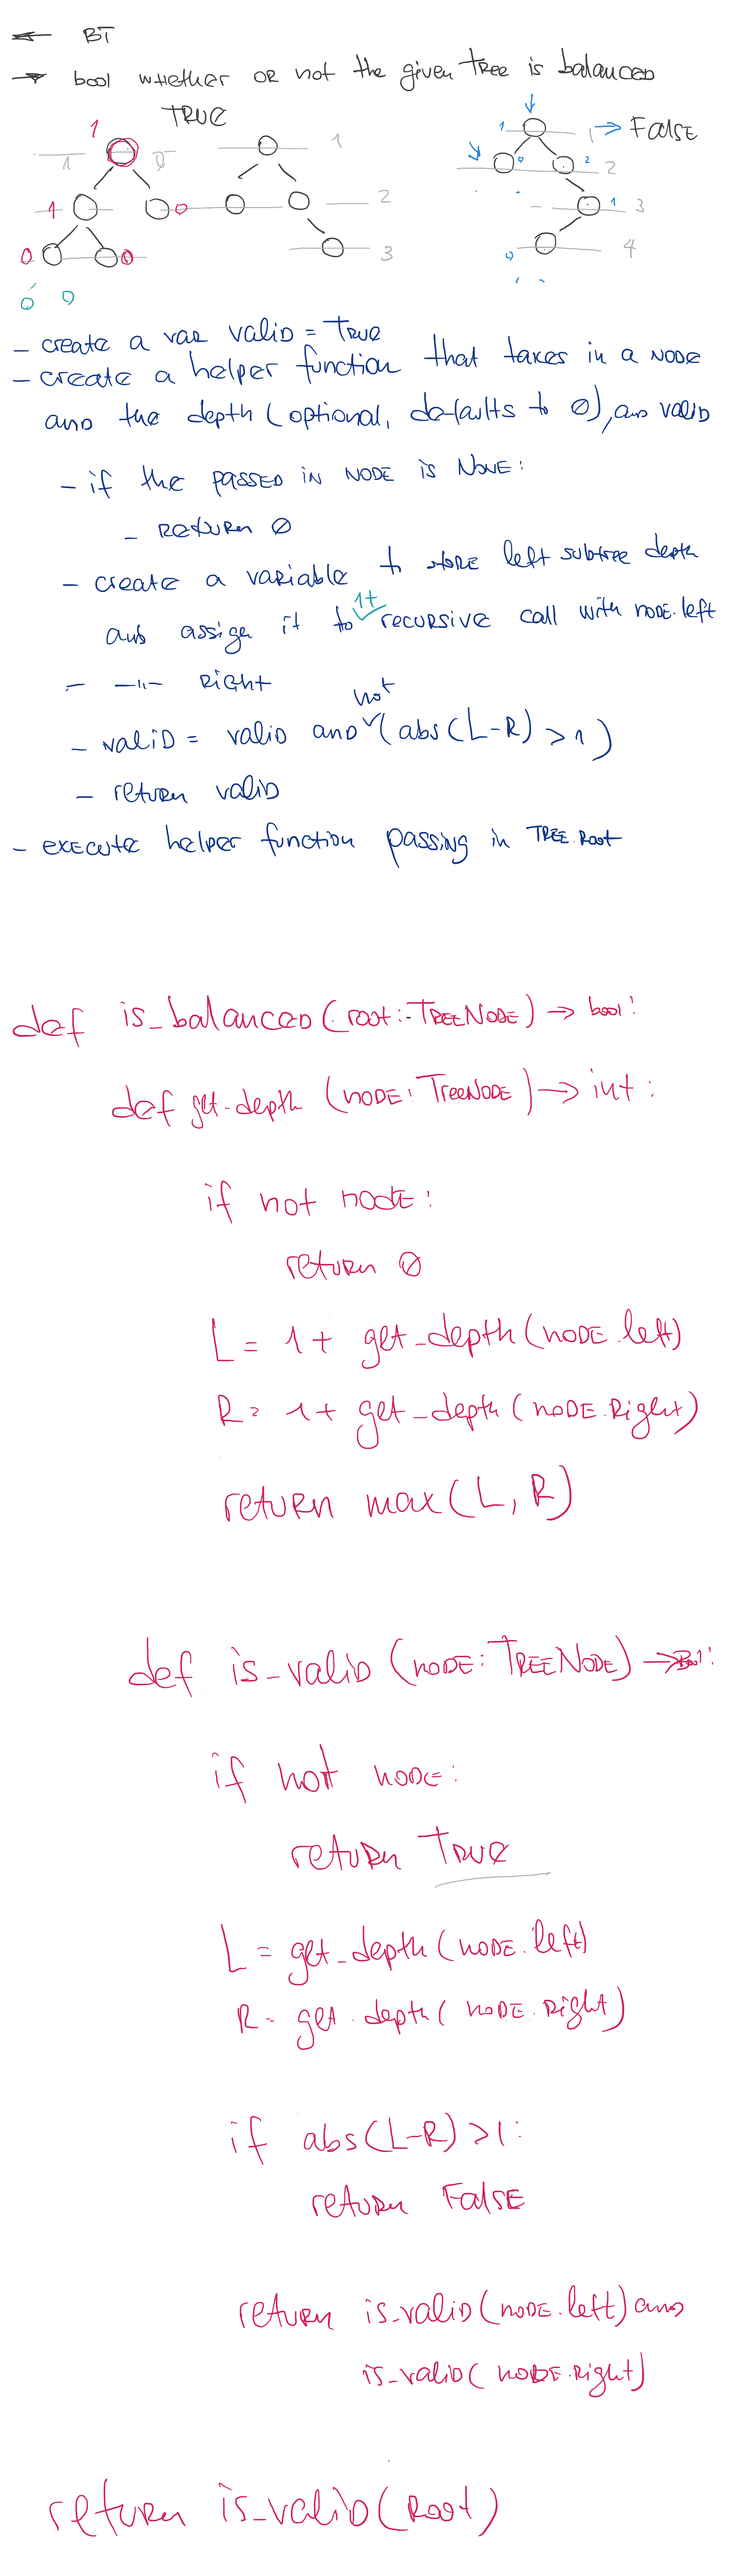 ← BT
→ bool whether or not the given tree is balanced
TRUE
1
1 0
1 0
0 0
0 0
1
2
3
→ False
1 1
0 2 2
1 3
0 4
- create a var valid = True
- create a helper function that takes in a node
and the depth (optional, defaults to 0), and valid
- if the passed in node is None:
- return 0
- create a variable to store left subtree depth
and assign it to 1+ recursive call with node.left
- -"- Right
- valid = valid and not (abs(L-R) > 1)
- return valid
- execute helper function passing in Tree.Root
def is_balanced(root: TreeNode) → bool:
def get_depth (node: TreeNode) → int:
if not node:
return 0
L = 1 + get_depth(node.left)
R = 1 + get_depth(node.Right)
return max(L, R)
def is_valid (node: TreeNode) → Bool:
if not node:
return True
L = get_depth(node.left)
R = get_depth(node.Right)
if abs(L-R) > 1:
return False
return is_valid(node.left) and
is_valid(node.right)
return is_valid(Root)